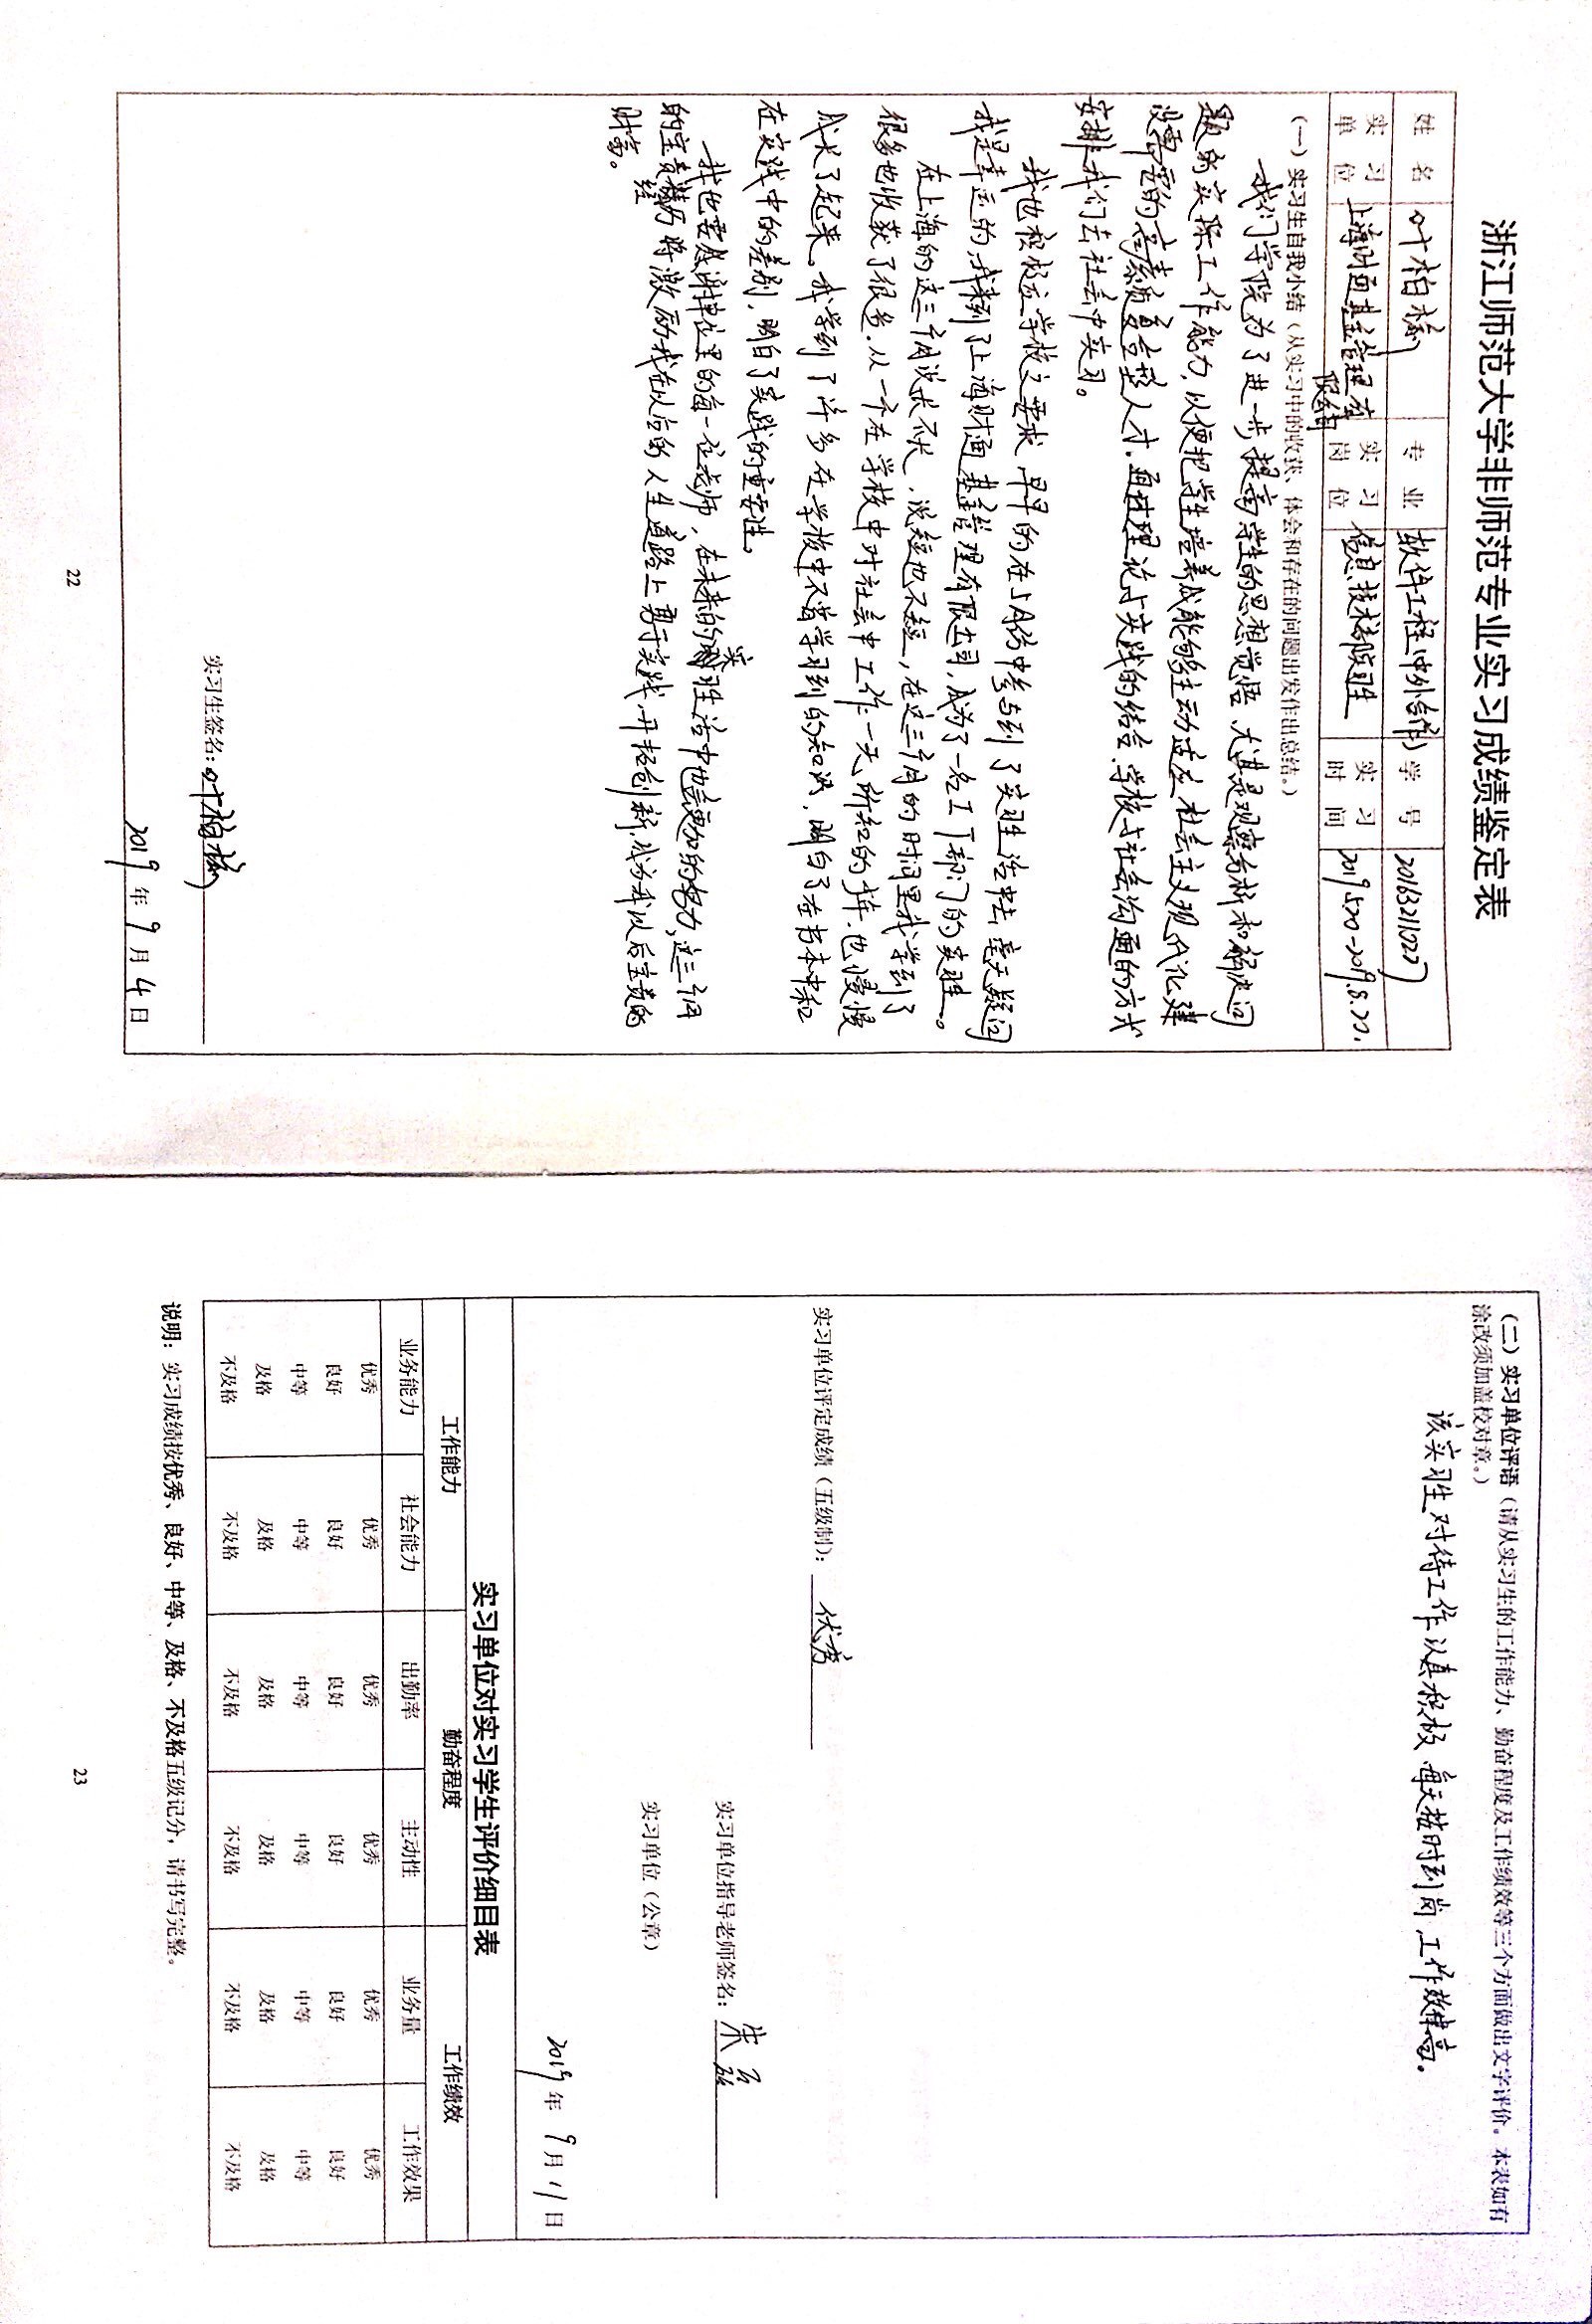 浙江师范大学非师范专业实习成绩鉴定表
姓名 叶柏 专业 软件工程(中外合作) 学号 201632110227
实习单位 上海财通基金管理有限公司 实习岗位 信息技术部实习生 实习时间 2019.5.20-2019.8.20.
(一)实习生自我小结(从实习中的收获、体会和存在的问题出发作出总结。)
我们学院为了进一步提高学生的思想觉悟,尤其是观察分析和解决问
题的实际工作能力,以便把学生培养成能够主动适应社会主义现代化建
设需要的高素质复合型人才,通过理论与实践的结合、学校与社会沟通的方式
安排我们去社会中实习。
我也积极应学校之要求,早早的在5月份中参与到了实习生活中去,毫无疑问
我是幸运的,我来到了上海财通基金管理有限公司,成为了一名IT部门的实习生。
在上海的这三个月说长不长,说短也不短,在这三个月的时间里我学到了
很多也收获了很多,从一个在学校中对社会中工作一无所知的少年,也慢慢
成长了起来。我学到了许多在学校中不曾学习到的知识,明白了在书本中和
在实践中的差别,明白了实践的重要性。
我也要感谢单位里的每一位老师,在未来的实习生活中也会更加的努力,这三个月
的宝贵经历将激励我在以后的人生道路上勇于实践,开拓创新,成为我以后宝贵的
财富。
实习生签名:叶柏
2019年9月4日
22
(二)实习单位评语(请从实习生的工作能力、勤奋程度及工作绩效等三个方面做出文字评价。本表如有
涂改须加盖校对章。)
该实习生对待工作认真积极,每天按时到岗,工作效率高。
实习单位评定成绩(五级制):优秀
实习单位指导老师签名:朱
实习单位(公章)
2019年9月11日
实习单位对实习学生评价细目表
工作能力 勤奋程度 工作绩效
业务能力 社会能力 出勤率 主动性 业务量 工作效果
优秀 优秀 优秀 优秀 优秀 优秀
良好 良好 良好 良好 良好 良好
中等 中等 中等 中等 中等 中等
及格 及格 及格 及格 及格 及格
不及格 不及格 不及格 不及格 不及格 不及格
说明:实习成绩按优秀、良好、中等、及格、不及格五级记分,请书写完整。
23